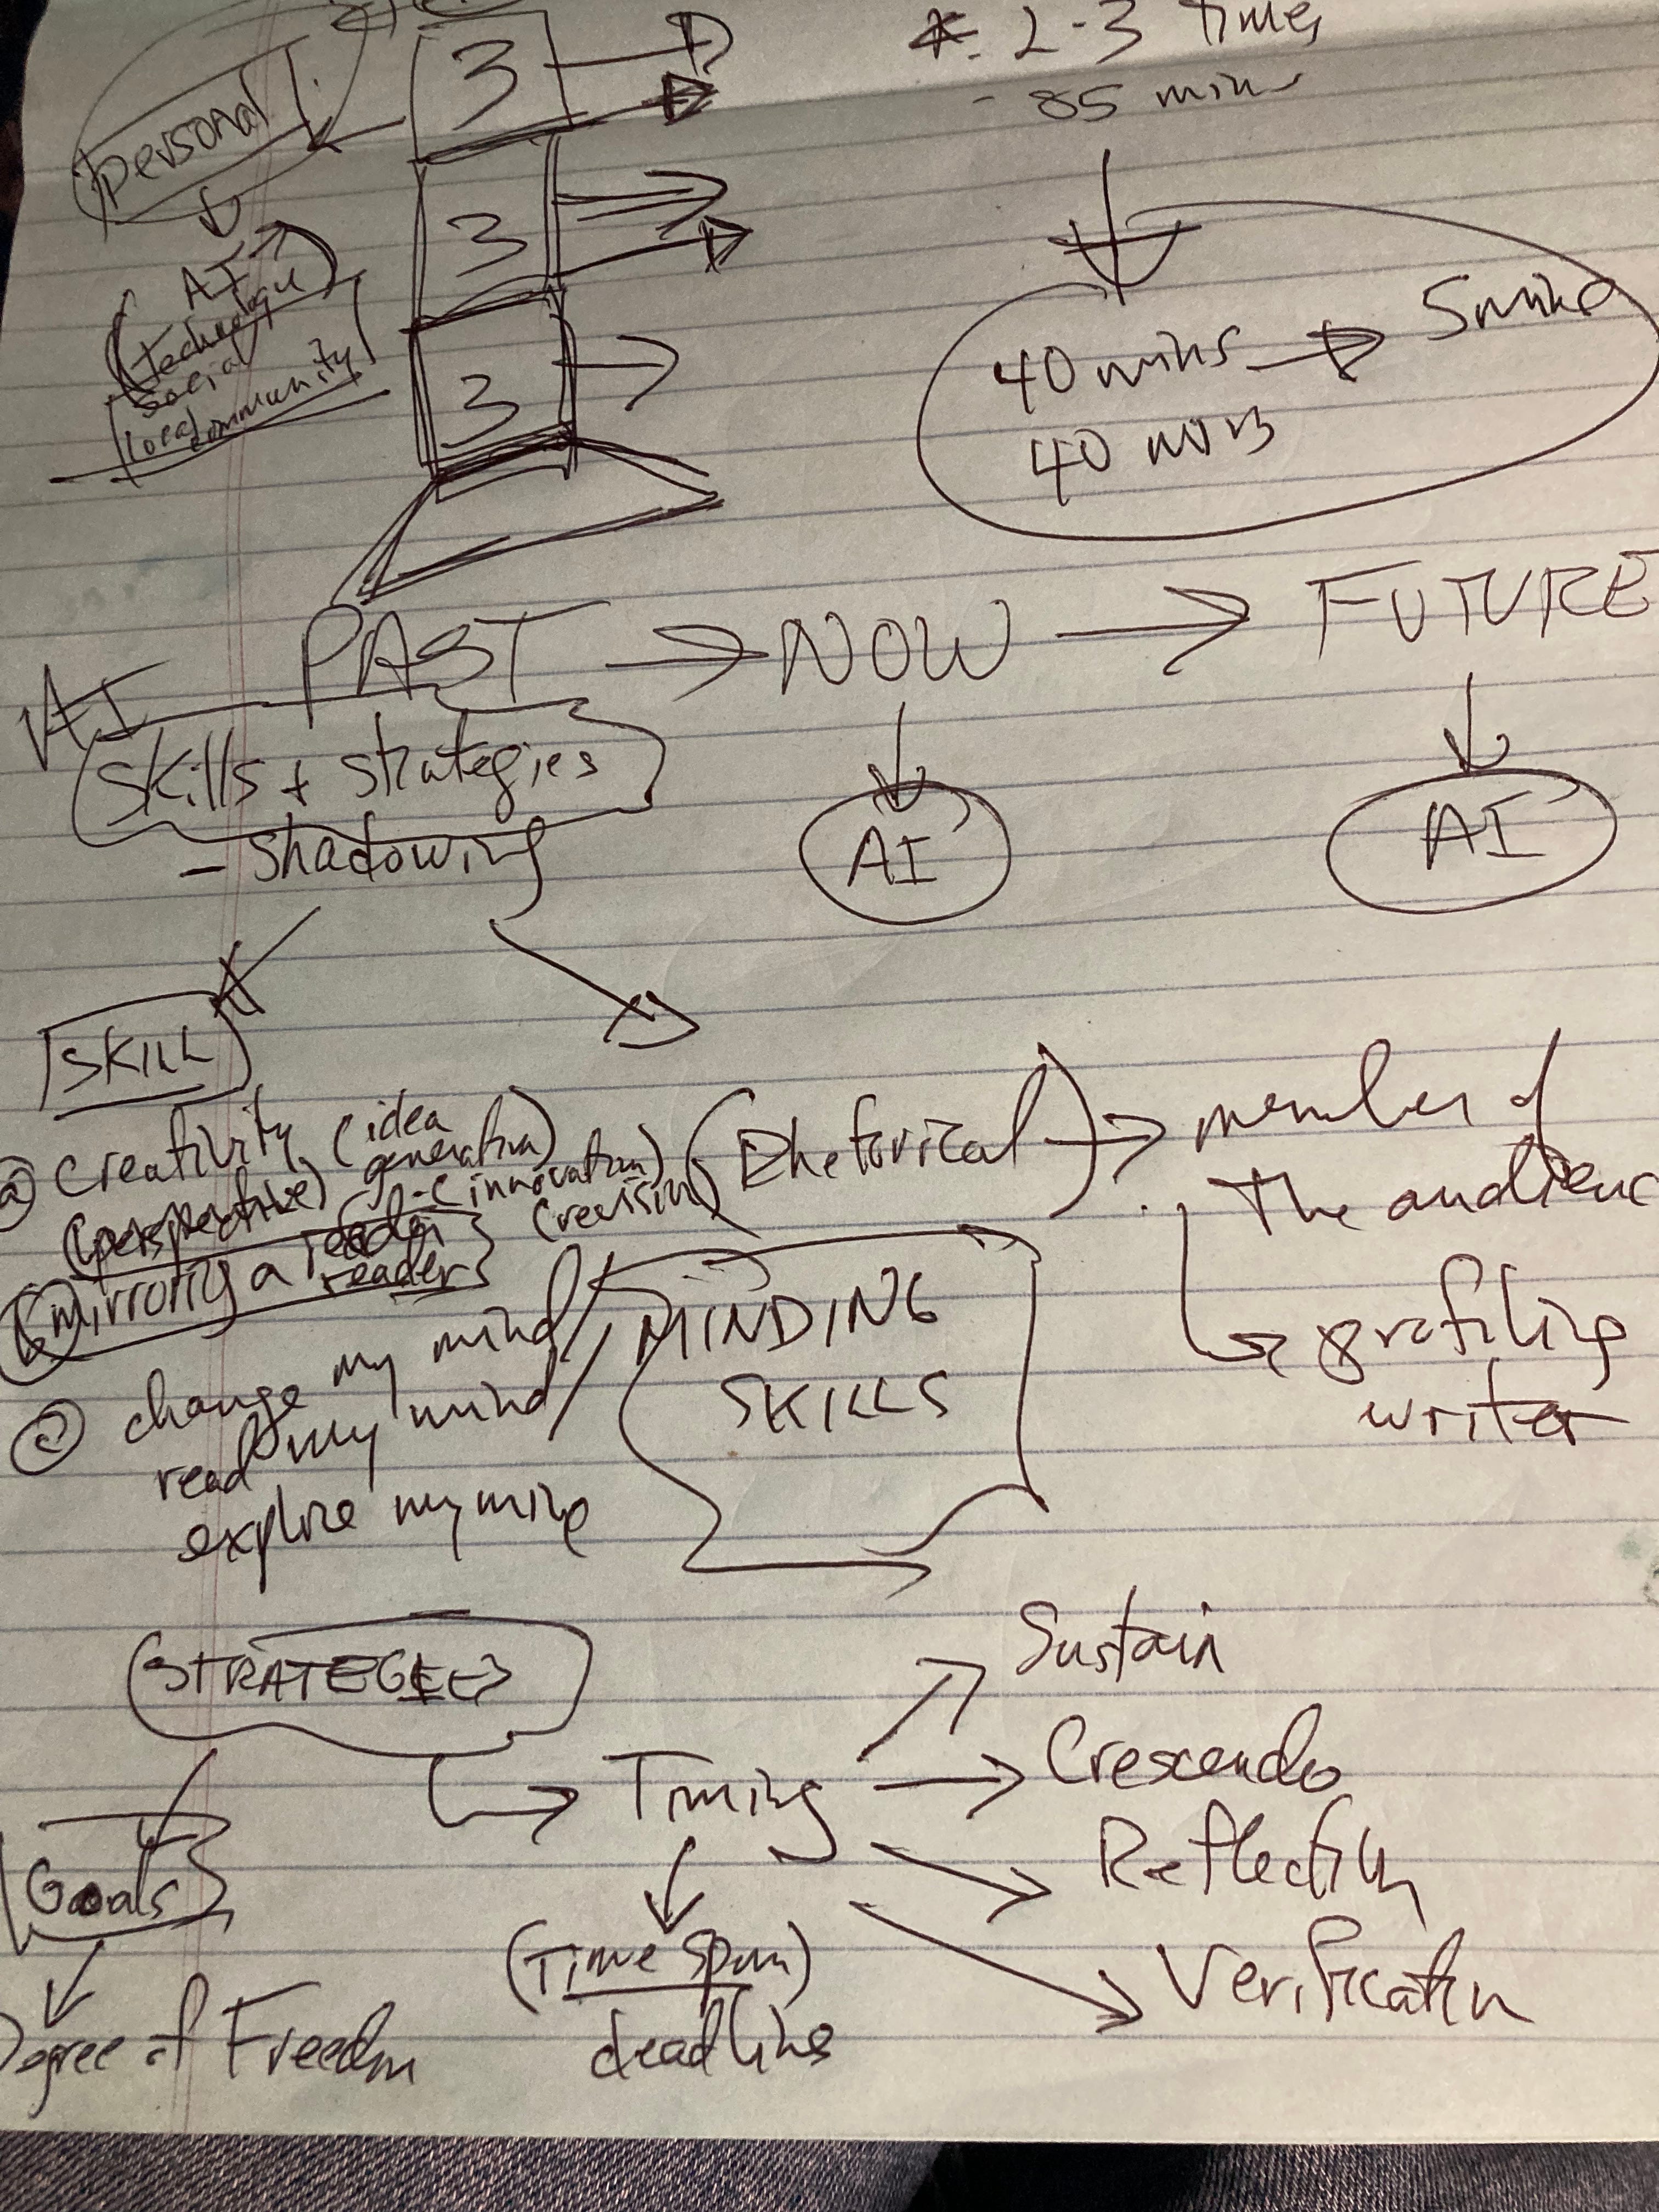 3
2-3 times
- 85 mins
Personal
AI
technology
social
local
community
3
3
40 mins → 5 mins
40 mins
PAST → NOW → FUTURE
AI
skills + strategies
- shadowing
AI
AI
SKILL
(a) creativity (idea generation)
(perspective) (innovation)
(revision)
(Rhetorical) → member of
the audience
profiling
writer
(b) mirroring a reader
reader
(c) change my mind
read my mind
explore my mind
MINDING
SKILLS
STRATEGIES
Timing
Sustain
Crescendo
Reflection
Verification
Goals
(Time Span)
deadlines
Degree of Freedom